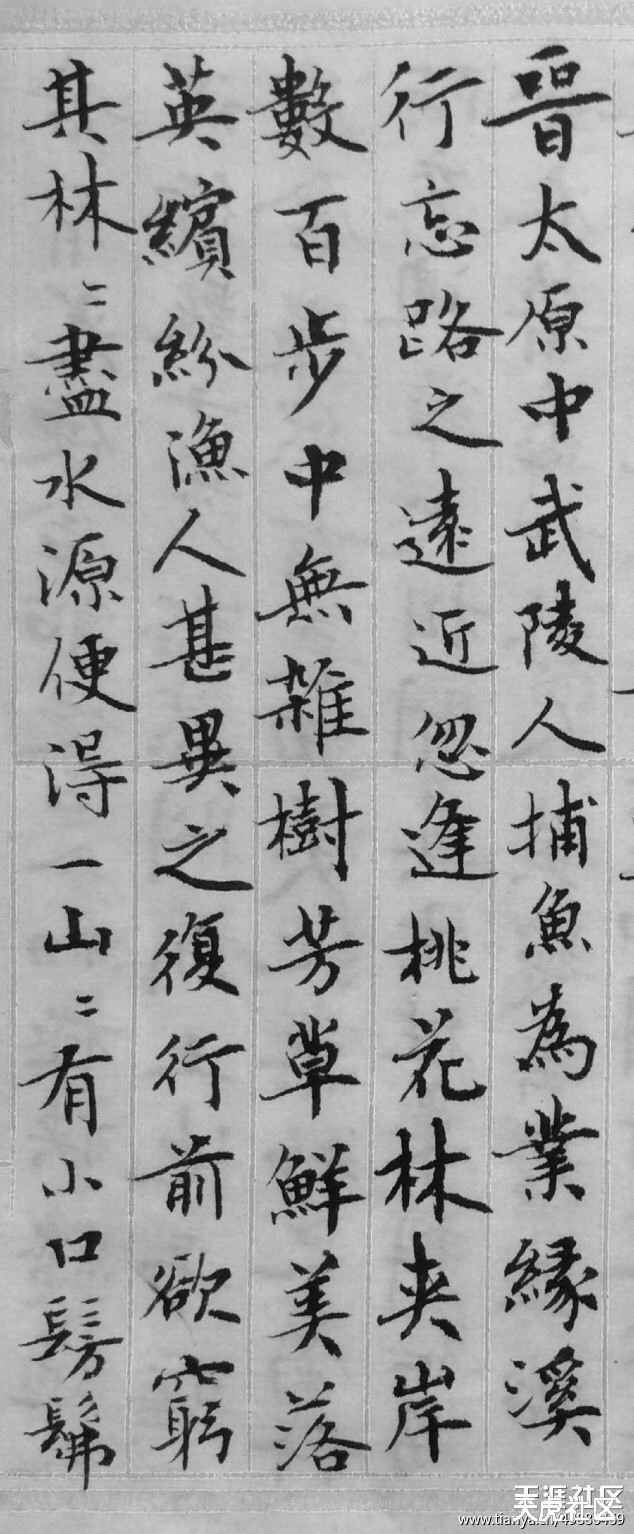 晉太原中武陵人捕魚為業緣溪
行忘路之遠近忽逢桃花林夾岸
數百步中無雜樹芳草鮮美落
英繽紛漁人甚異之復行前欲窮
其林〻盡水源便得一山〻有小口髣髴
天涯社区